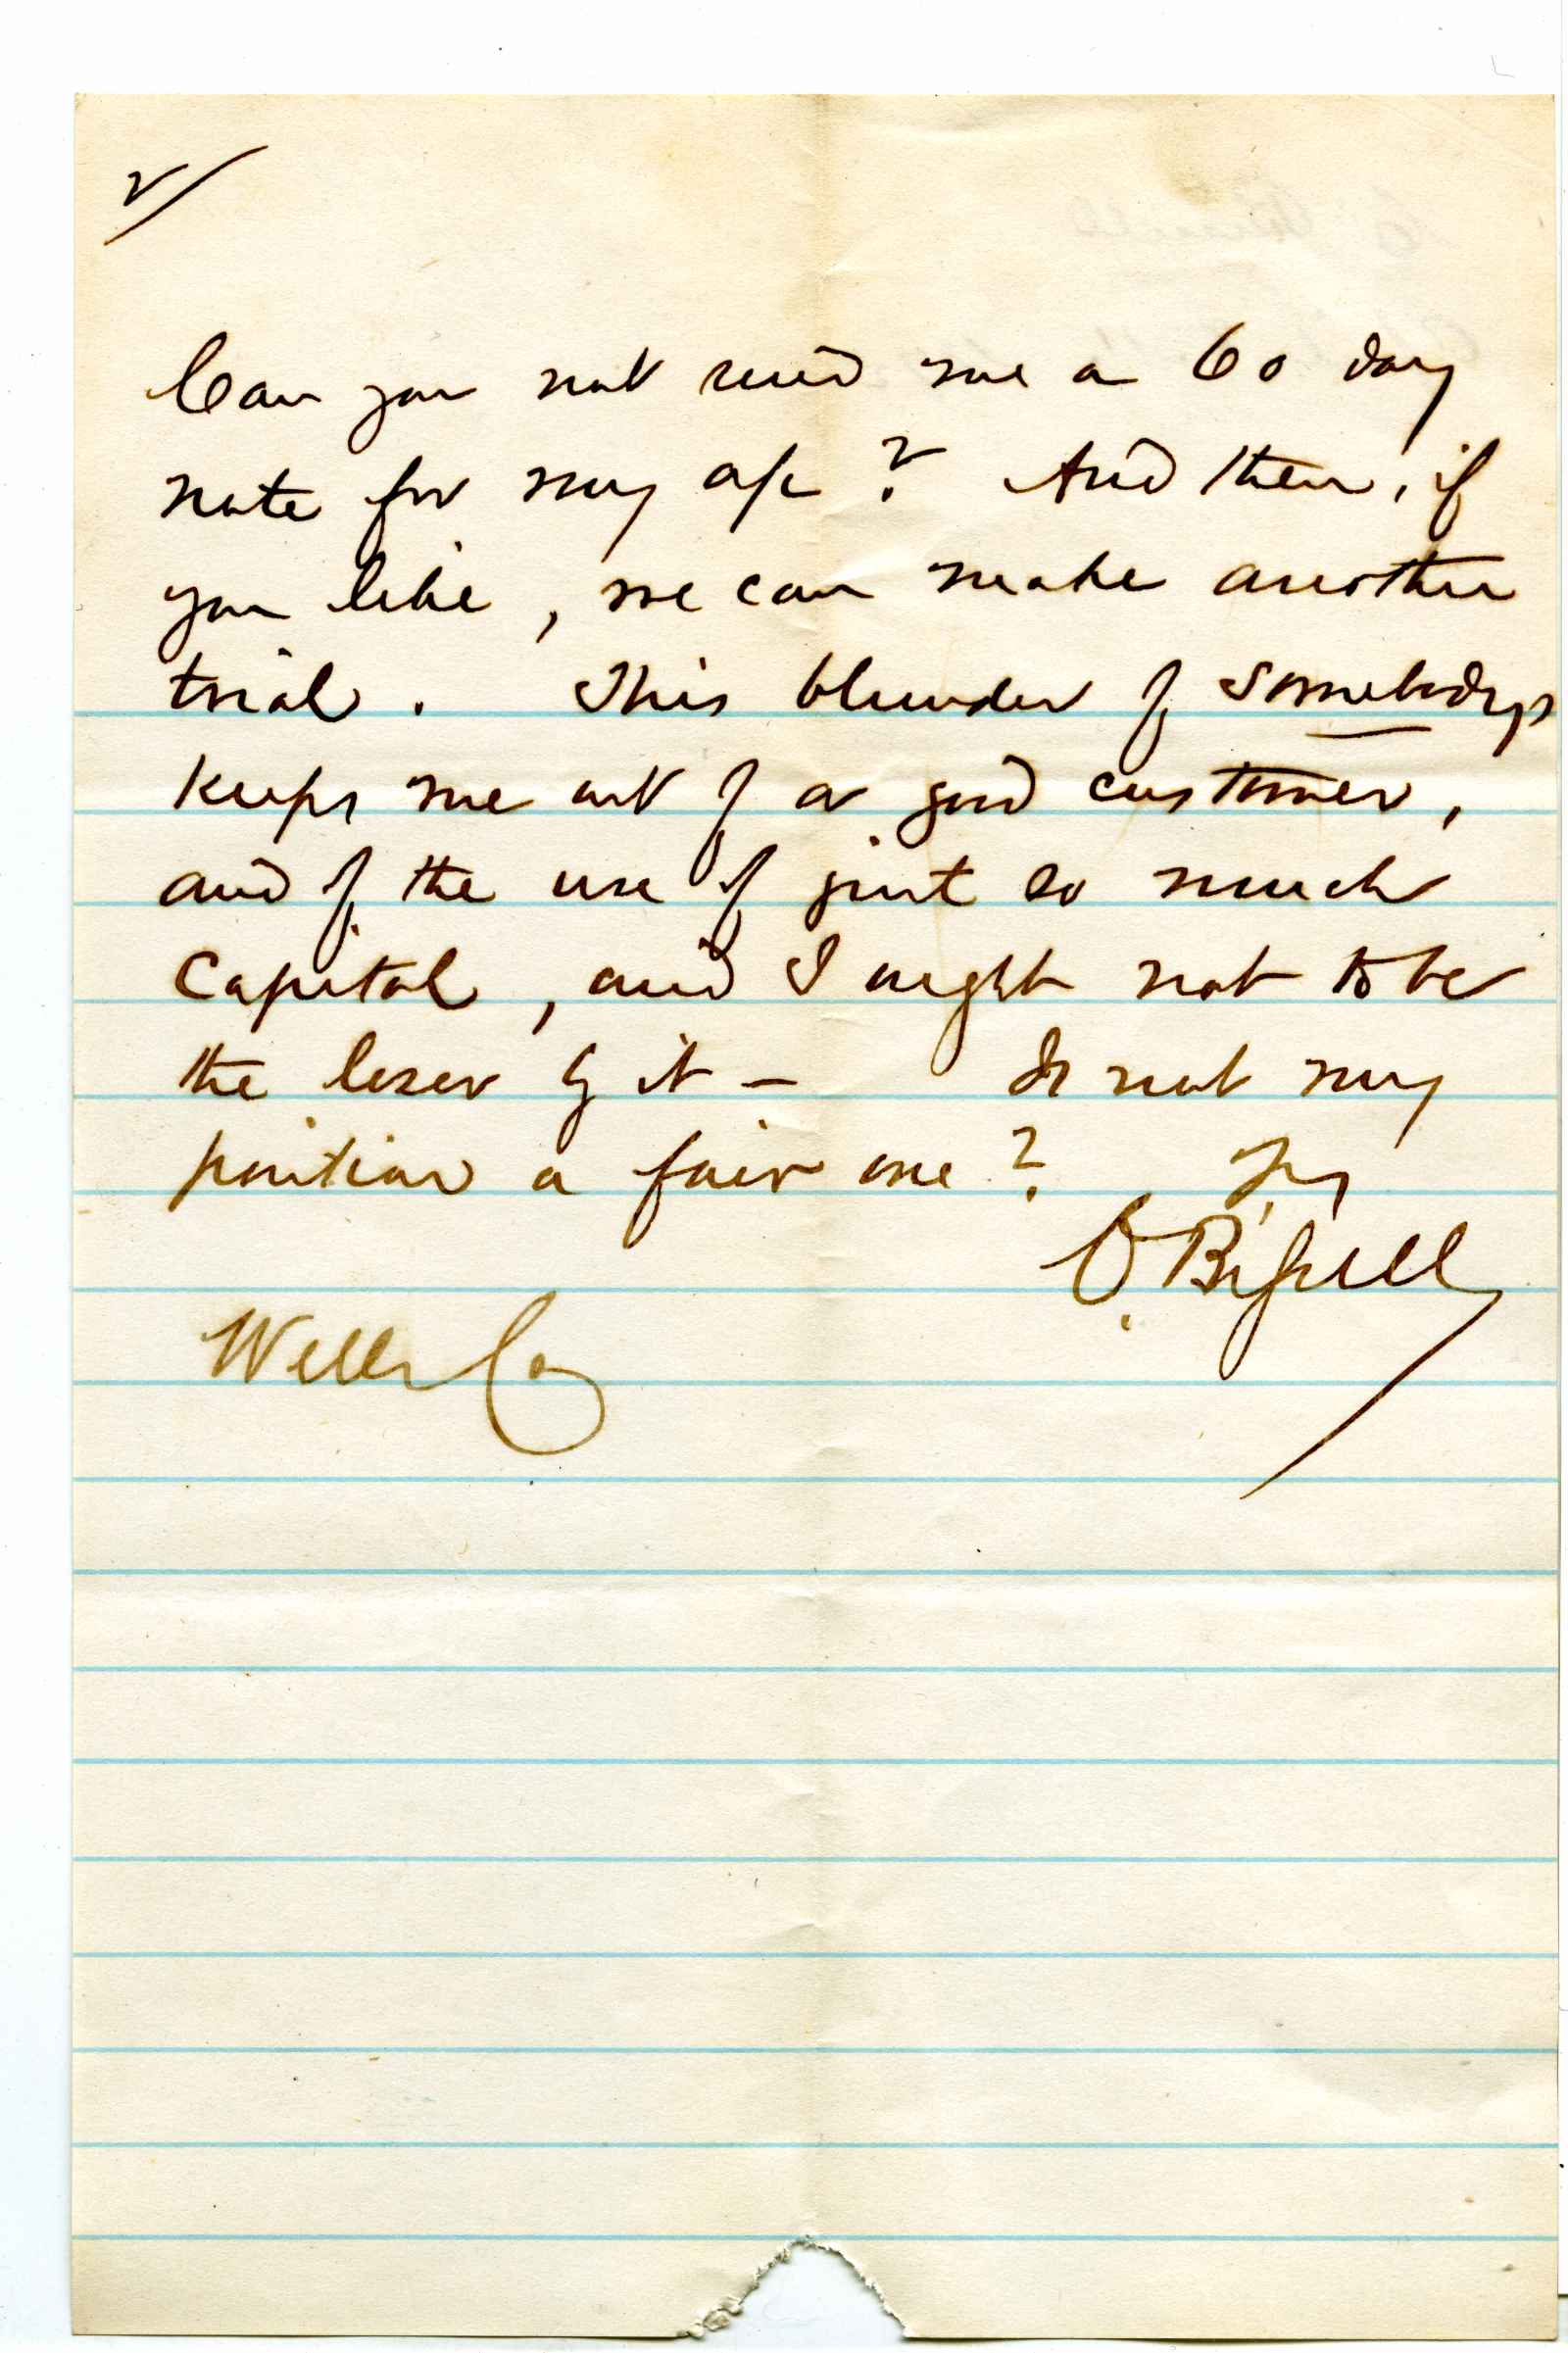 2/
Can you not send me a 60 day
note for my a/c ? And then, if
you like, we can make another
trial. This blunder of somebodys
keeps me out of a good customer,
and of the use of just so much
Capital, and I ought not to be
the loser by it —  Is not my
position a fair one ?
O. Bissell
Wells Co